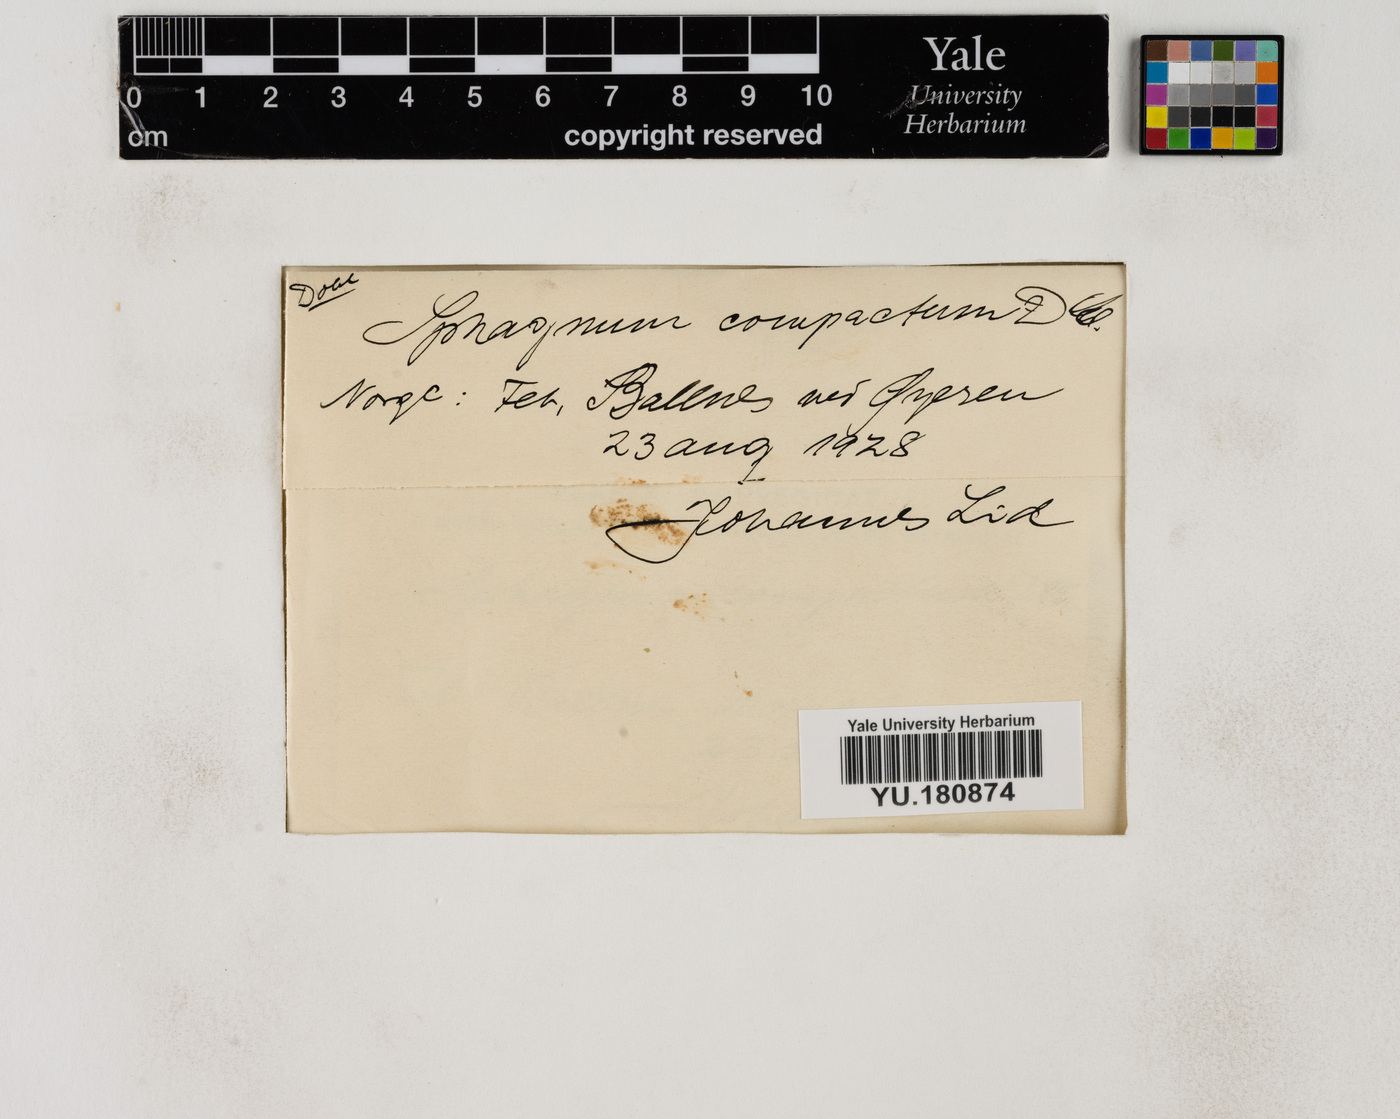 0 1 2 3 4 5 6 7 8 9 10
cm
copyright reserved
Yale
University
Herbarium
Sphagnum compactum DC.
Norge: Fet, Ballnes ved Øyeren
23 aug 1928
Johannes Lid
Yale University Herbarium
YU.180874